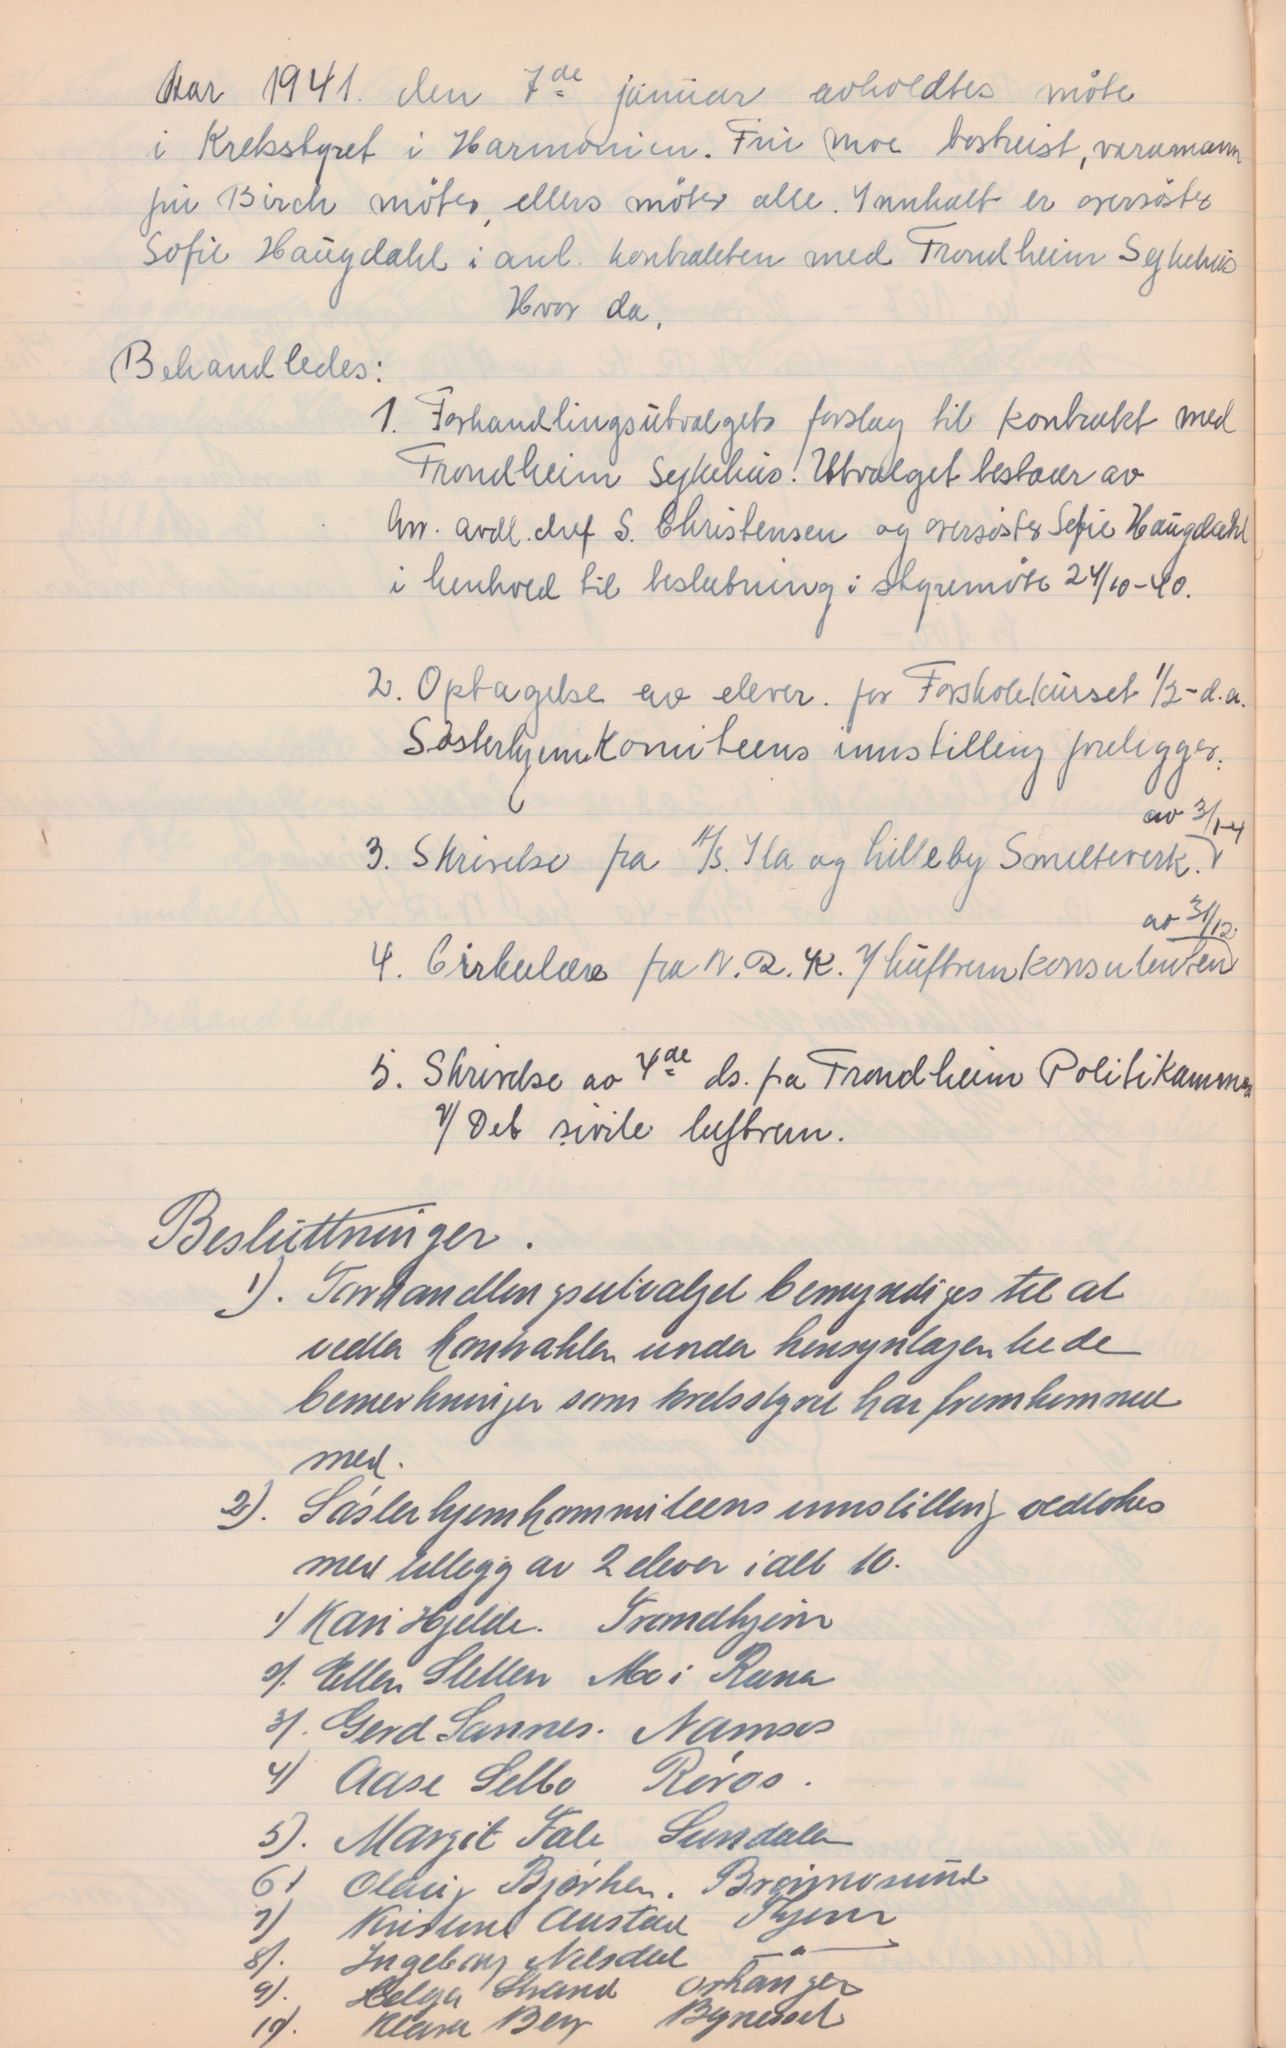 Aar 1941. den 7de januar avholdtes möte
i Kretsstyret i Harmonien. Fru Moe bortreist, varamann
fru Birch möter, ellers möter alle. Innkalt er oversöster
Sofie Haugdahl i anl. kontrakten med Trondheim Sykehus
Hvor da,
Behandledes:
1. Forhandlingsutvalgets forslag til kontrakt med
Trondheim Sykehus. Utvalget bestaar av
hr. avdl. chef S. Christensen og oversöster Sofie Haugdahl
i henhold til beslutning i styremöte 24/10-40.
2. Optagelse av elever. for Forskolekurset 1/2-d.a.
Sösterhjemkomiteens innstilling foreligger.
av 3/1-4
3. Skrivelse fra A/S. Ila og Lilleby Smelteverk.
av 31/12
4. Cirkulære fra N.R.K. v/ luftvernkonsulenten
5. Skrivelse av 4de ds. fra Trondheim Politikammer
v/ Det sivile luftvern.
Besluttninger.
1). Forhandlingsutvalget bemyndiges til at
vedta kontrakten under hensyntagen til de
bemerkninger som kretsstyret har fremkommet
med.
2). Sösterhjemkommiteens innstilling vedtokes
med tillegg av 2 elever ialt 10.
1) Kari Hjelde. Trondhjem
2). Ellen Sletten Mo i Rana
3). Gerd Sannes. Namsos
4) Aase Selbo Röros.
5). Margit Fale Sundalen
6) Olaug Björken. Brönnösund
7) Kristine Austad Kjem
8). Ingeborg Nilsdal —"—
9). Helga Strand Orkanger
10). Klara Berg Byneset